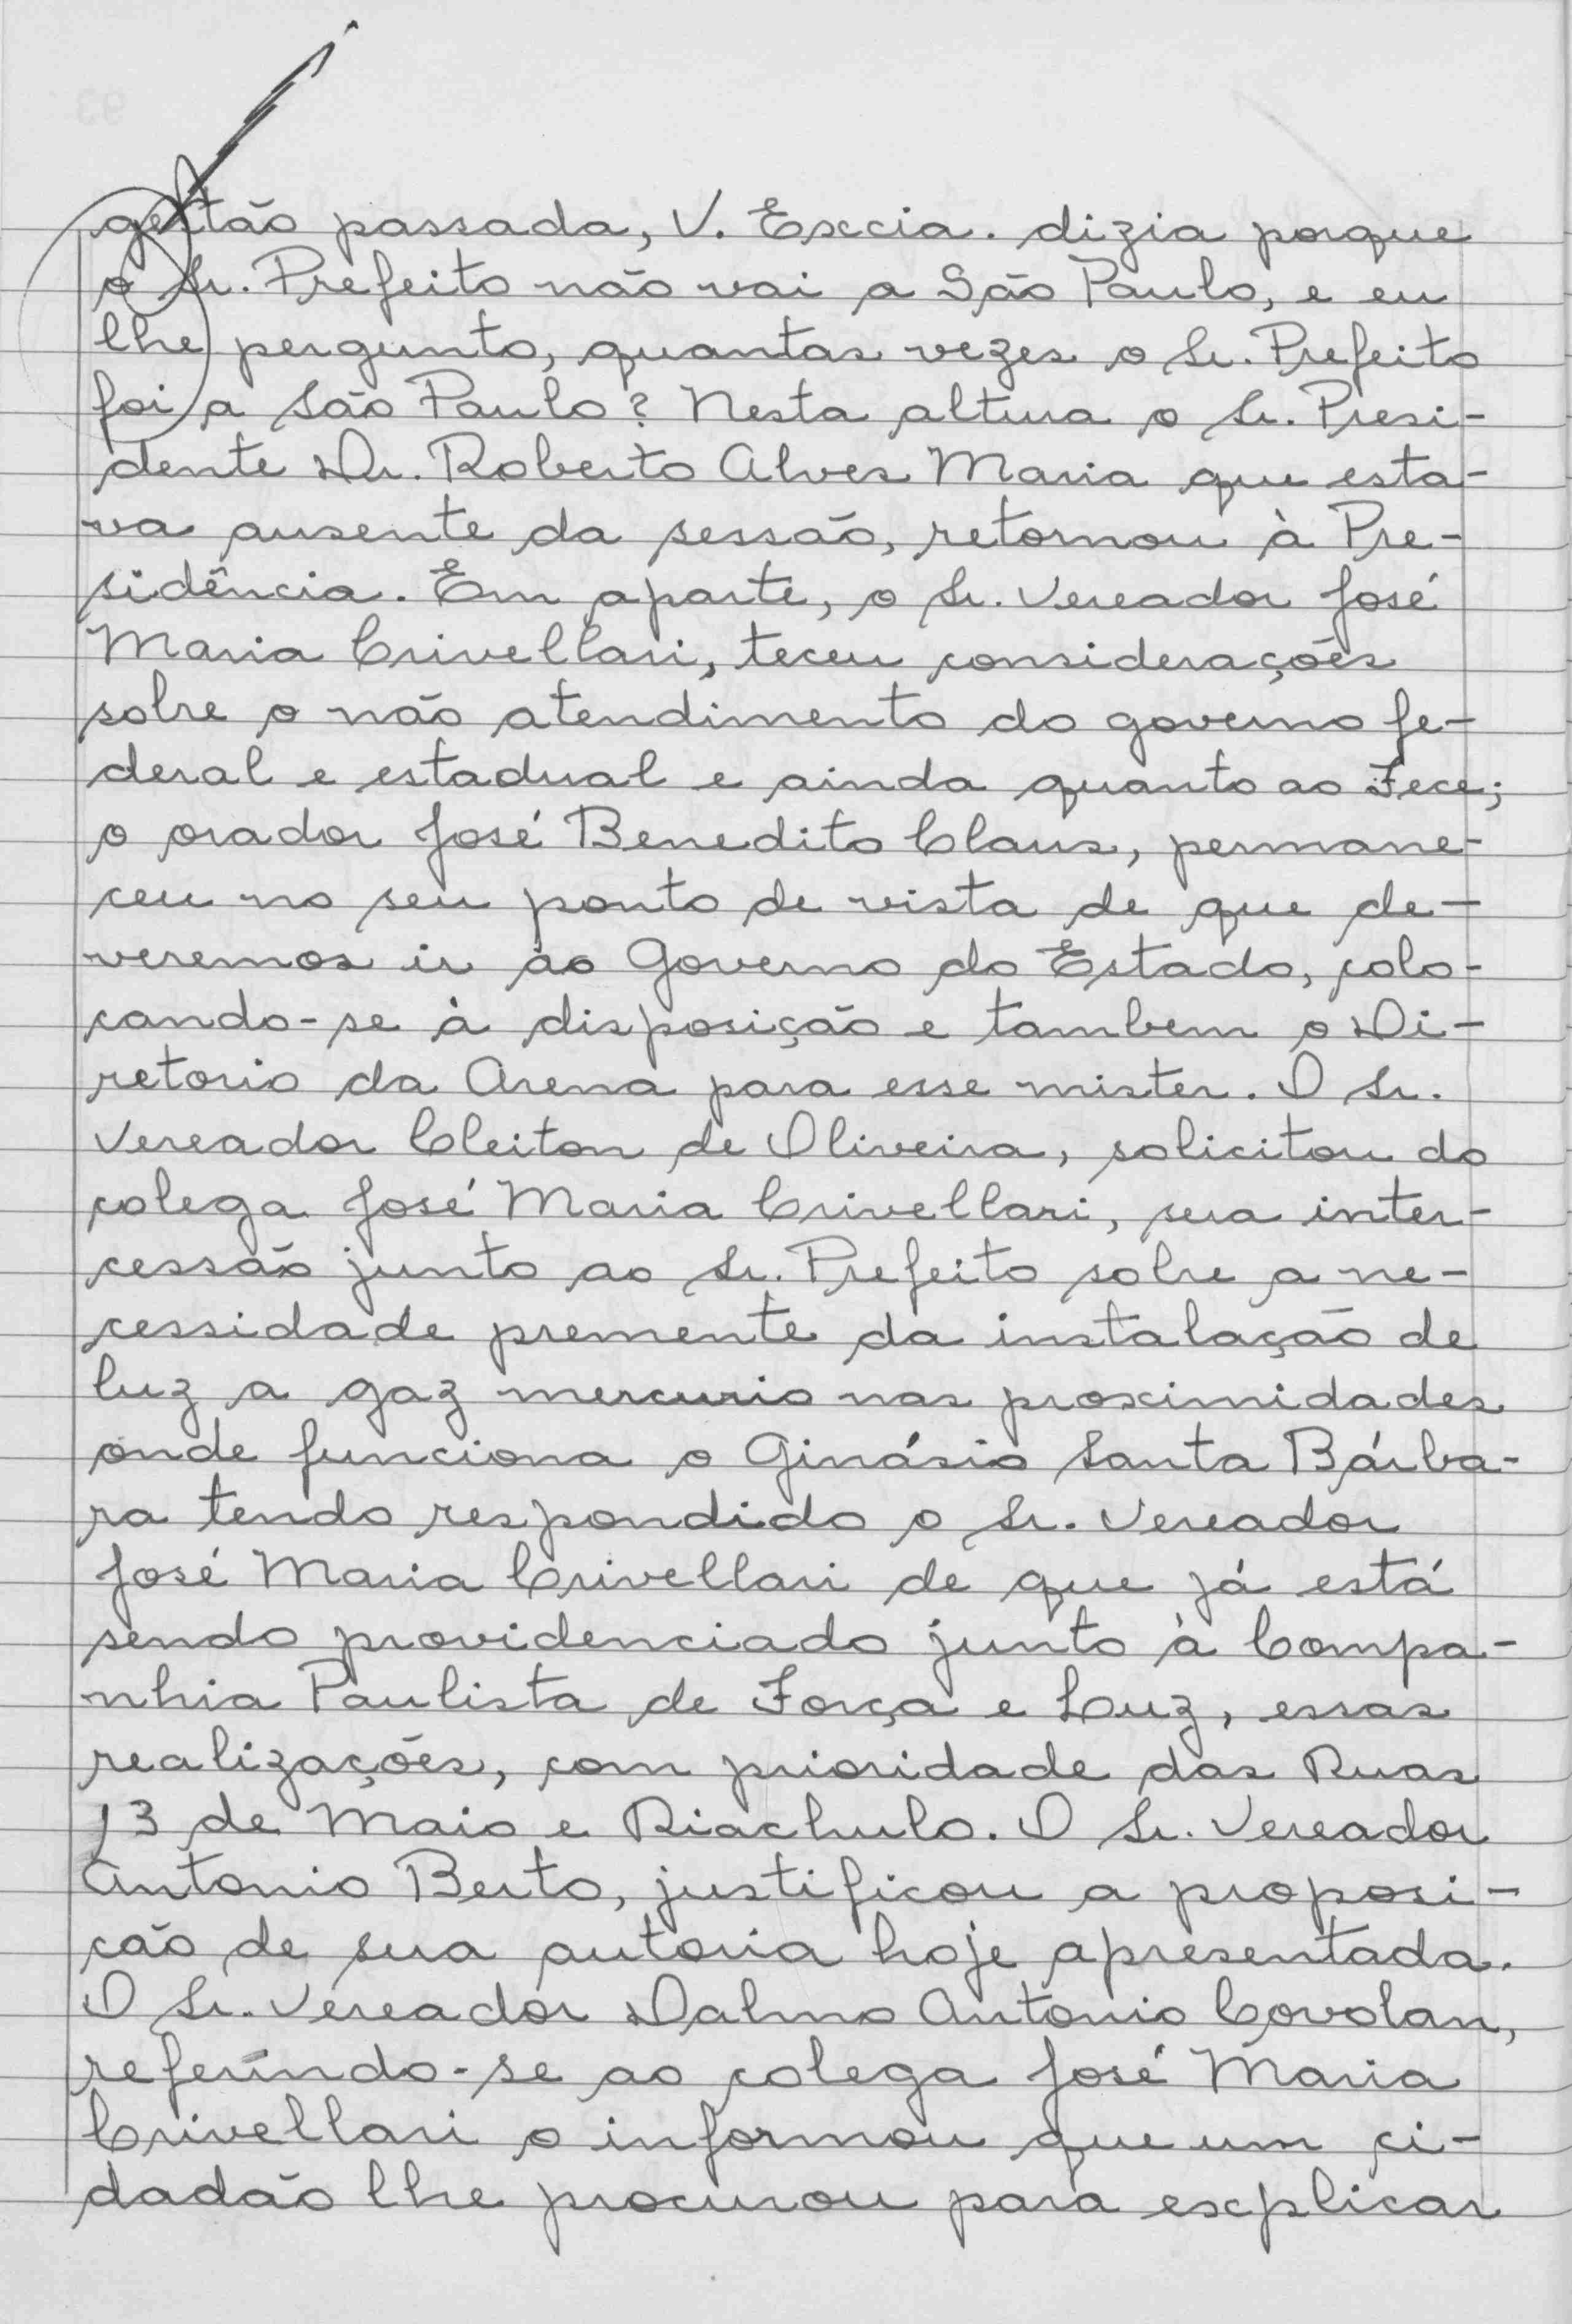 gestão passada, V. Excia. dizia porque
o Sr. Prefeito não vai a São Paulo, e eu
lhe pergunto, quantas vezes o Sr. Prefeito
foi a São Paulo? Nesta altura o Sr. Presi-
dente Dr. Roberto Alves Maria que esta-
va ausente da sessão, retornou à Pre-
sidência. Em aparte, o Sr. Vereador José
Maria Crivellari, teceu considerações
sobre o não atendimento do governo fe-
deral e estadual e ainda quanto ao Fece;
o orador José Benedito Claus, permane-
ceu no seu ponto de vista de que de-
veremos ir ao Governo do Estado, colo-
cando-se à disposição e tambem o Di-
retorio da Arena para esse mister. O Sr.
Vereador Cleiton de Oliveira, solicitou do
colega José Maria Crivellari, sua inter-
cessão junto ao Sr. Prefeito sobre a ne-
cessidade premente da instalação de
luz a gaz mercurio nas proximidades
onde funciona o Ginásio Santa Bárba-
ra tendo respondido o Sr. Vereador
José Maria Crivellari de que já está
sendo providenciado junto à Compa-
nhia Paulista de Força e Luz, essas
realizações, com prioridade das Ruas
13 de Maio e Riachulo. O Sr. Vereador
Antonio Berto, justificou a proposi-
cão de sua autoria hoje apresentada.
O Sr. Vereador Dalmo Antonio Covolan,
referindo-se ao colega José Maria
Crivellari o informou que um ci-
dadão lhe procurou para explicar